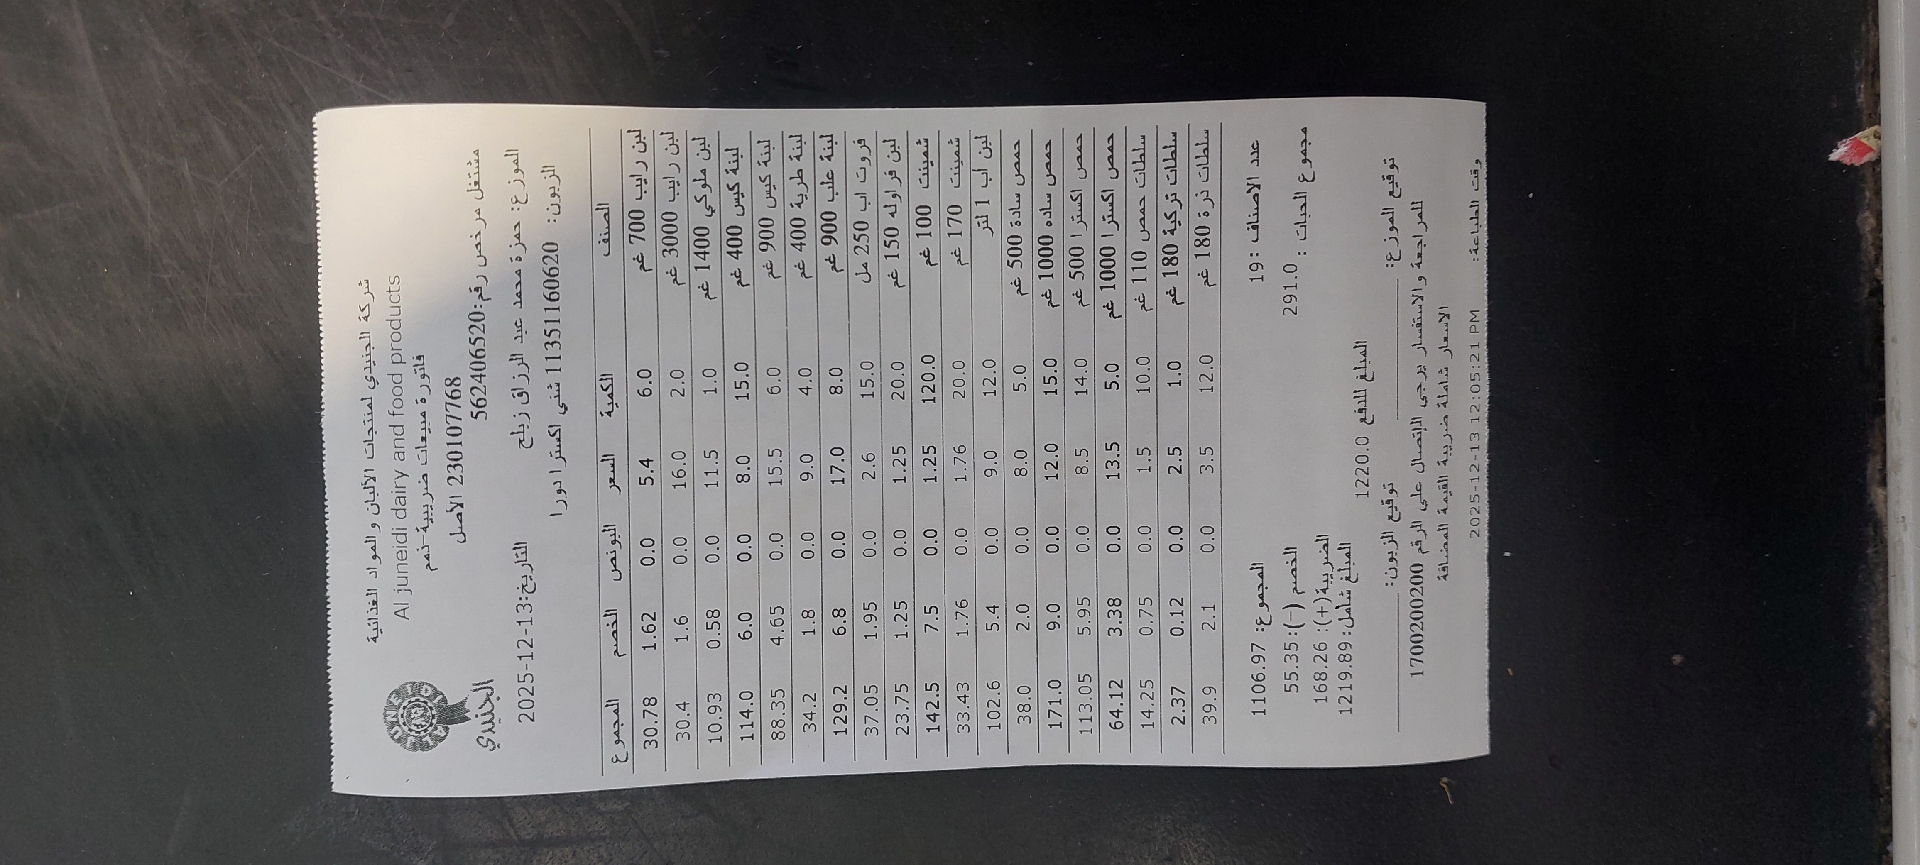 شركة الجنيدي لمنتجات الألبان و المواد الغذائية
Al juneidi dairy and food products
فاتورة مبيعات ضريبية-ذمم
230107768 الأصل
مشتغل مرخص رقم:562406520
الجنيدي
الموزع: حمزة محمد عبد الرزاق زبلح التاريخ:2025-12-13
الزبون: 11351160620 شني اكسترا دورا
الصنف الكمية السعر البونص الخصم المجموع
لبن رايب 700 غم 6.0 5.4 0.0 1.62 30.78
لبن رايب 3000 غم 2.0 16.0 0.0 1.6 30.4
لبن ملوكي 1400 غم 1.0 11.5 0.0 0.58 10.93
لبنة كيس 400 غم 15.0 8.0 0.0 6.0 114.0
لبنة كيس 900 غم 6.0 15.5 0.0 4.65 88.35
لبنة طرية 400 غم 4.0 9.0 0.0 1.8 34.2
لبنة علب 900 غم 8.0 17.0 0.0 6.8 129.2
فروت اب 250 مل 15.0 2.6 0.0 1.95 37.05
لبن فراوله 150 غم 20.0 1.25 0.0 1.25 23.75
شمينت 100 غم 120.0 1.25 0.0 7.5 142.5
شمينت 170 غم 20.0 1.76 0.0 1.76 33.43
لبن اب 1 لتر 12.0 9.0 0.0 5.4 102.6
حمص سادة 500 غم 5.0 8.0 0.0 2.0 38.0
حمص ساده 1000 غم 15.0 12.0 0.0 9.0 171.0
حمص اكسترا 500 غم 14.0 8.5 0.0 5.95 113.05
حمص اكسترا 1000 غم 5.0 13.5 0.0 3.38 64.12
سلطات حمص 110 غم 10.0 1.5 0.0 0.75 14.25
سلطات تركية 180 غم 1.0 2.5 0.0 0.12 2.37
سلطات ذرة 180 غم 12.0 3.5 0.0 2.1 39.9
عدد الاصناف :19 المجموع: 1106.97
مجموع الحبات : 291.0 الخصم (-): 55.35
الضريبة(+): 168.26
المبلغ شامل: 1219.89
المبلغ للدفع 1220.0
توقيع الموزع: توقيع الزبون:
للمراجعة و الاستفسار يرجى الإتصال على الرقم 1700200200
الاسعار شاملة ضريبة القيمة المضافة
وقت الطباعة: 2025-12-13 12:05:21 PM